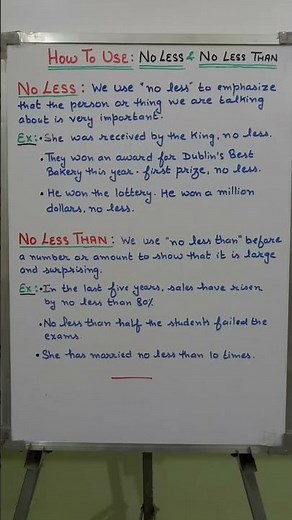 How To Use: No Less & No Less Than
No Less: We use "no less" to emphasize
that the person or thing we are talking
about is very important.
Ex:• She was received by the King, no less.
• They won an award for Dublin's Best
Bakery this year - first prize, no less.
• He won the lottery. He won a million
dollars, no less.
No Less Than: We use "no less than" before
a number or amount to show that it is large
and surprising.
Ex:• In the last five years, sales have risen
by no less than 80%
• No less than half the students failed the
exams.
• She has married no less than 10 times.